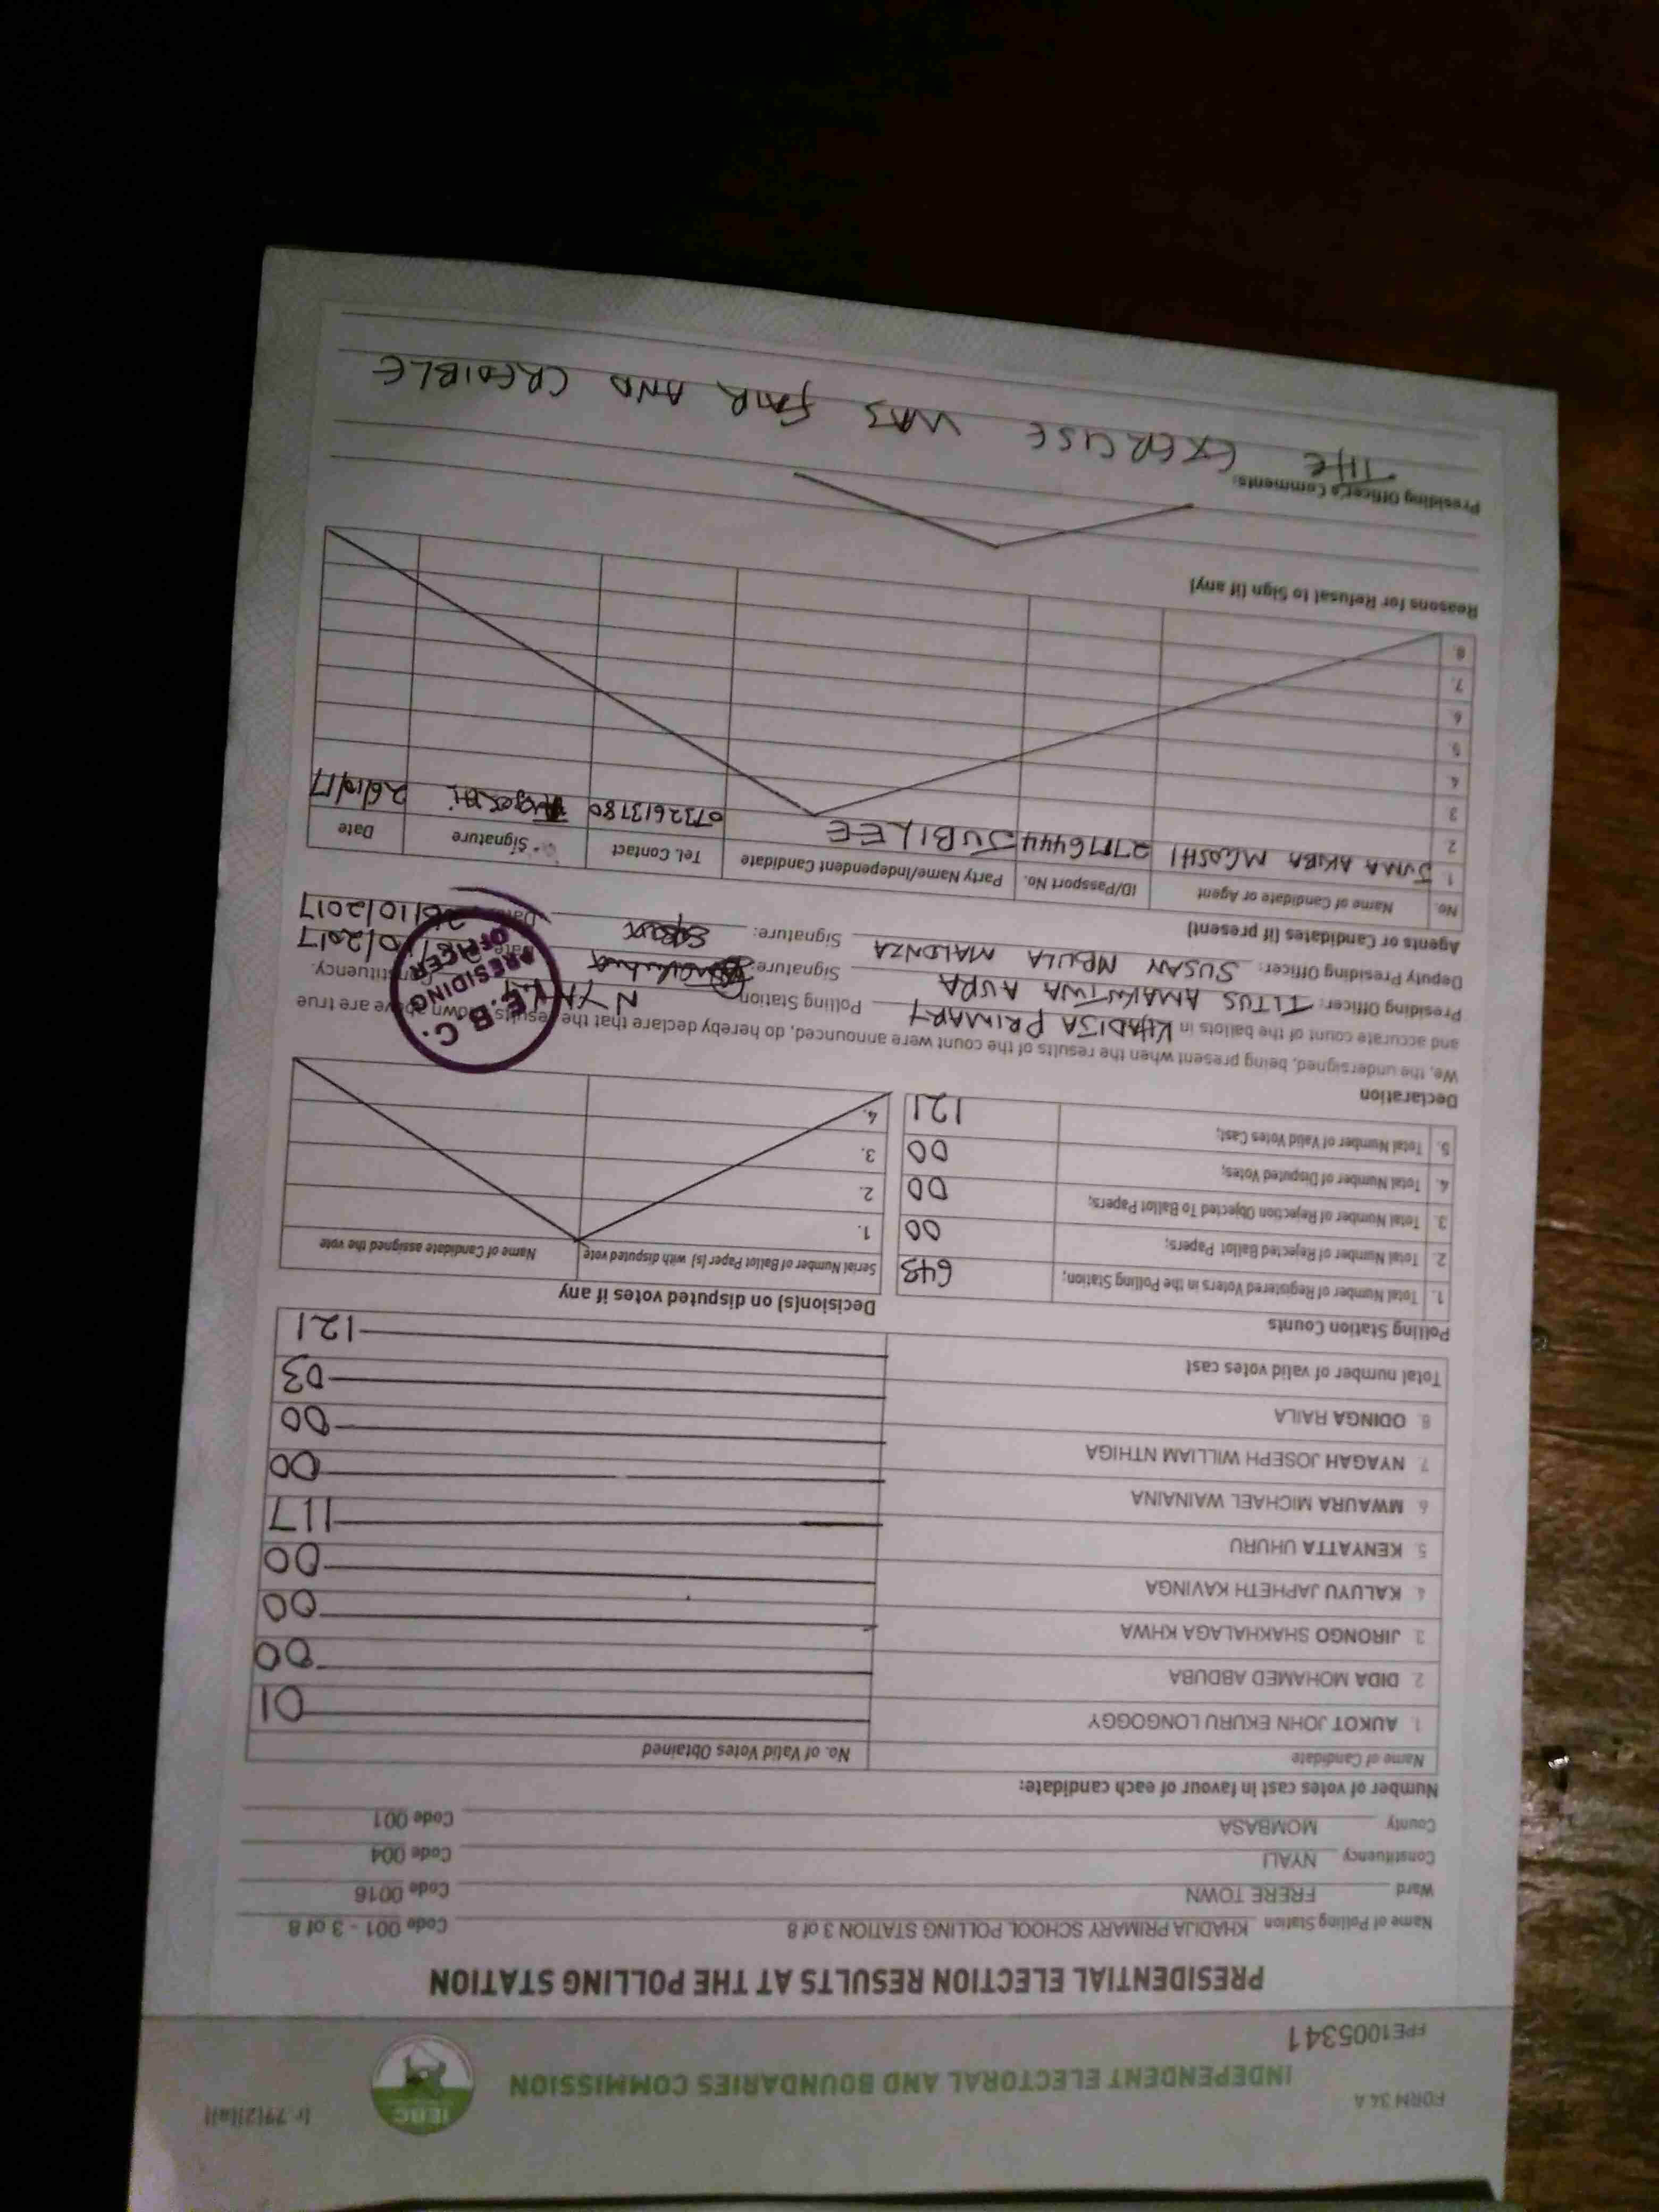 FORM 34 A
(r.79(2)(a))
IEBC
INDEPENDENT ELECTORAL AND BOUNDARIES COMMISSION
FPE1005341
PRESIDENTIAL ELECTION RESULTS AT THE POLLING STATION
Name of Polling Station KHADIJA PRIMARY SCHOOL POLLING STATION 3 of 8 Code 001 - 3 of 8
Ward FRERE TOWN Code 0016
Constituency NYALI Code 004
County MOMBASA Code 001
Number of votes cast in favour of each candidate:
Name of Candidate No. of Valid Votes Obtained
1. AUKOT JOHN EKURU LONGOGGY 01
2. DIDA MOHAMED ABDUBA 00
3. JIRONGO SHAKHALAGA KHWA 00
4. KALUYU JAPHETH KAVINGA 00
5. KENYATTA UHURU 117
6. MWAURA MICHAEL WAINAINA 00
7. NYAGAH JOSEPH WILLIAM NTHIGA 00
8. ODINGA RAILA 03
Total number of valid votes cast 121
Polling Station Counts
1. Total Number of Registered Voters in the Polling Station; 643
2. Total Number of Rejected Ballot Papers; 00
3. Total Number of Rejection Objected To Ballot Papers; 00
4. Total Number of Disputed Votes; 00
5. Total Number of Valid Votes Cast; 121
Decision(s) on disputed votes if any
Serial Number of Ballot Paper (s) with disputed vote Name of Candidate assigned the vote
1.
2.
3.
4.
Declaration
We, the undersigned, being present when the results of the count were announced, do hereby declare that the results shown above are true
and accurate count of the ballots in KHADIJA PRIMARY Polling Station NYALI Constituency.
Presiding Officer: TITUS AMAKUTWA AURA Signature: Date: 26/10/2017
Deputy Presiding Officer: SUSAN MBULA MALONZA Signature: Date: 26/10/2017
I.E.B.C.
PRESIDING
OFFICER
Agents or Candidates (if present)
No. Name of Candidate or Agent ID/Passport No. Party Name/Independent Candidate Tel. Contact Signature Date
1. JUMA AKIBA MGOSHI JUBILEE 0732613780 26/10/17
2
3
4
5
6
7.
8.
Reasons for Refusal to Sign (if any)
Presiding Officer's Comments:
THE EXERCISE WAS FAIR AND CREDIBLE